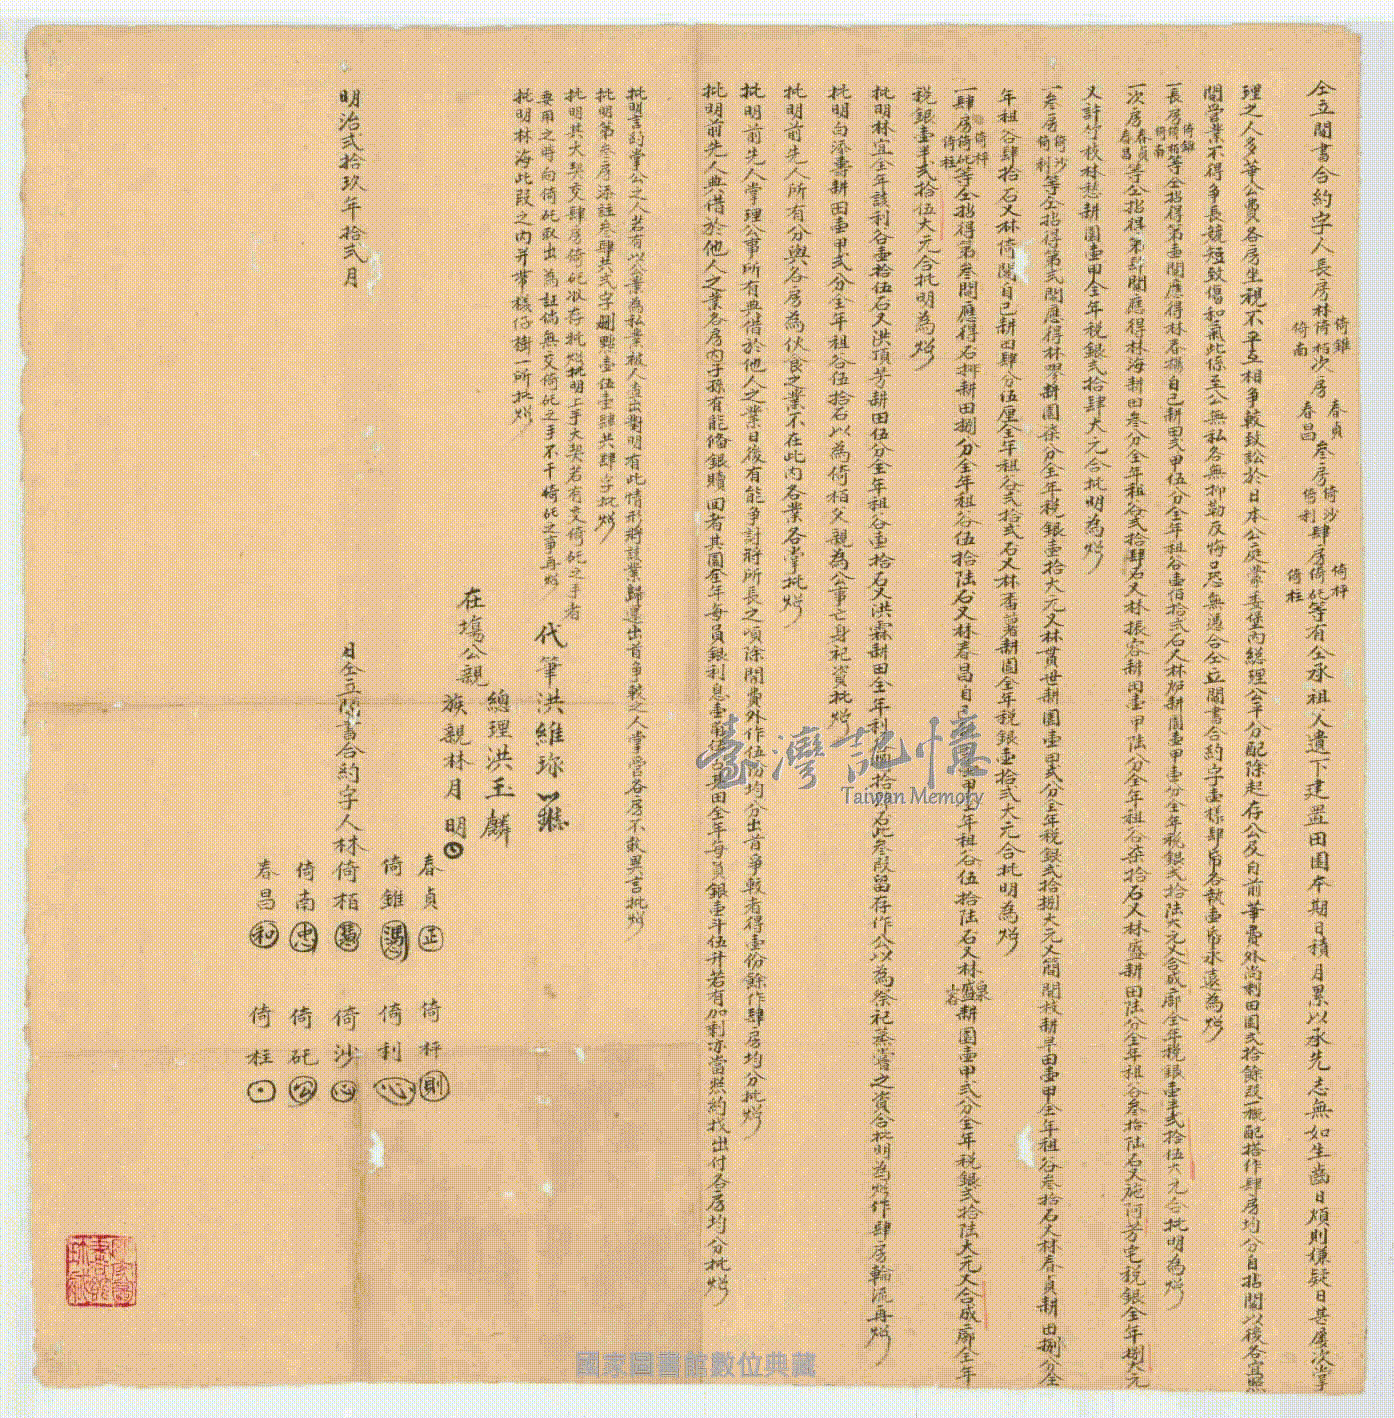 仝立鬮書合約字人長房林倚栢倚錐倚南次房春貞春昌叁房倚沙倚利肆房倚矺倚枰倚柱等有仝承祖父遺下建置田園本期日積月累以承先志無如生齒日煩則嫌疑日甚屢次掌
理之人多華公費各房坐視不平互相爭較致訟於日本公庭蒙委堡內總理公平分配除起存公及自前華費外尚剩田園弍拾餘段一概配搭作肆房均分自拈鬮以後各宜照
鬮管業不得爭長競短致傷和氣此係至公無私各無抑勒反悔口恐無憑合仝立鬮書合約字壹樣肆帋各執壹帋永遠為炤
一長房倚栢倚錐倚南等仝拈得第壹鬮應得林春揚自己耕田弍甲伍分仝年租谷壹佰拾弍石又林 耕園壹甲壹分仝年稅銀弍拾陸大元又合成廍仝年稅銀壹半弍拾伍大元合批明為炤
一次房春貞春昌等仝拈得第肆鬮應得林海耕田叁分仝年租谷弍拾肆石又林振容耕田壹甲陸分仝年租谷柒拾石又林盛耕田陸分仝年租谷叁拾陸石又施阿芳宅稅銀仝年捌大元
又許竹枝林愁耕園壹甲仝年稅銀弍拾肆大元合批明為炤
一叁房倚沙倚利等仝拈得第弍鬮應得林 耕園柒分仝年稅銀壹拾大元又林貫世耕園壹甲弍分仝年稅銀弍拾捌大元又簡開枝耕旱田壹甲仝年租谷叁拾石又林春貞耕田捌分仝
年租谷肆拾石又林倚鬧自己耕田肆分伍厘仝年租谷弍拾弍石又林番薯耕園仝年稅銀壹拾弍大元合批明為炤
一肆房倚矺倚枰倚柱等仝拈得第叁鬮應得石排耕田捌分仝年租谷伍拾陸石又林春昌自己 壹甲仝年租谷伍拾陸石又林盛 耕園壹甲弍分仝年稅銀弍拾陸大元又合成廍仝年
稅銀壹半弍拾伍大元合批明為炤
批明林宜仝年該利谷壹拾伍石又洪頂芳耕田伍分仝年租谷壹拾石又洪霖耕田仝年利谷 拾 石此叁段留存作公以為祭祀蒸嘗之資合批明為炤作肆房輪流再炤
批明向添壽耕田壹甲弍分仝年租谷伍拾石以為倚栢父親為公事亡身祀資批炤
批明前先人所有分與各房為伙食之業不在此內各業各掌批炤
批明前先人掌理公事所有典借於他人之業日後有能爭討將所長之項除開費外作伍份均分出首爭較者得壹份餘作肆房均分批炤
批明前先人典借於他人之業各房內子孫有能備銀贖回者其園仝年每員銀利息壹角伍 其田仝年每員銀壹斗伍升若有加剩亦當照約找出付各房均分批炤
批明言約掌公之人若有以公業為私業被人查出對明有此情形將該業歸還出首爭較之人掌管各房不敢異言批炤
批明第叁房添註叁肆共弍字刪點壹伍壹肆共肆字批炤
批明其大契交肆房倚矺收存批炤批明上手大契若有交倚矺之手者
要用之時向倚矺取出為証倘無交倚矺之手不干倚矺之事再炤
批明林海此段之內并帶檨仔樹一所批炤
代筆洪維珎
總理洪玉麟
在場公親
族親林月明
明治弍拾玖年拾弍月
日仝立鬮書合約字人林倚栢
春貞 正
倚錐
倚南 忠
春昌 和
倚枰 則
倚利 心
倚沙 心
倚矺 公
倚柱
臺灣記憶
Taiwan Memory
國家圖書館數位典藏